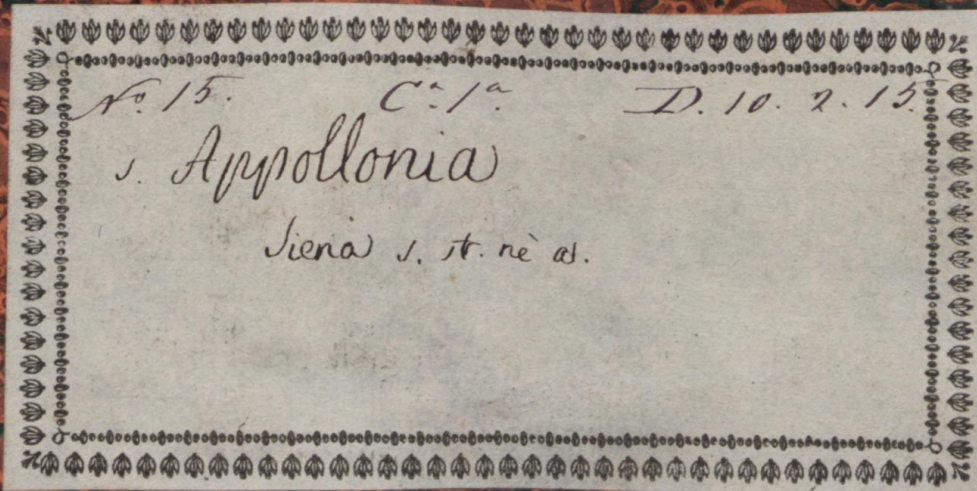 No. 15. Ca. 1a. D. 10. 2. 15.
s. Appollonia
Siena s. st. nè as.